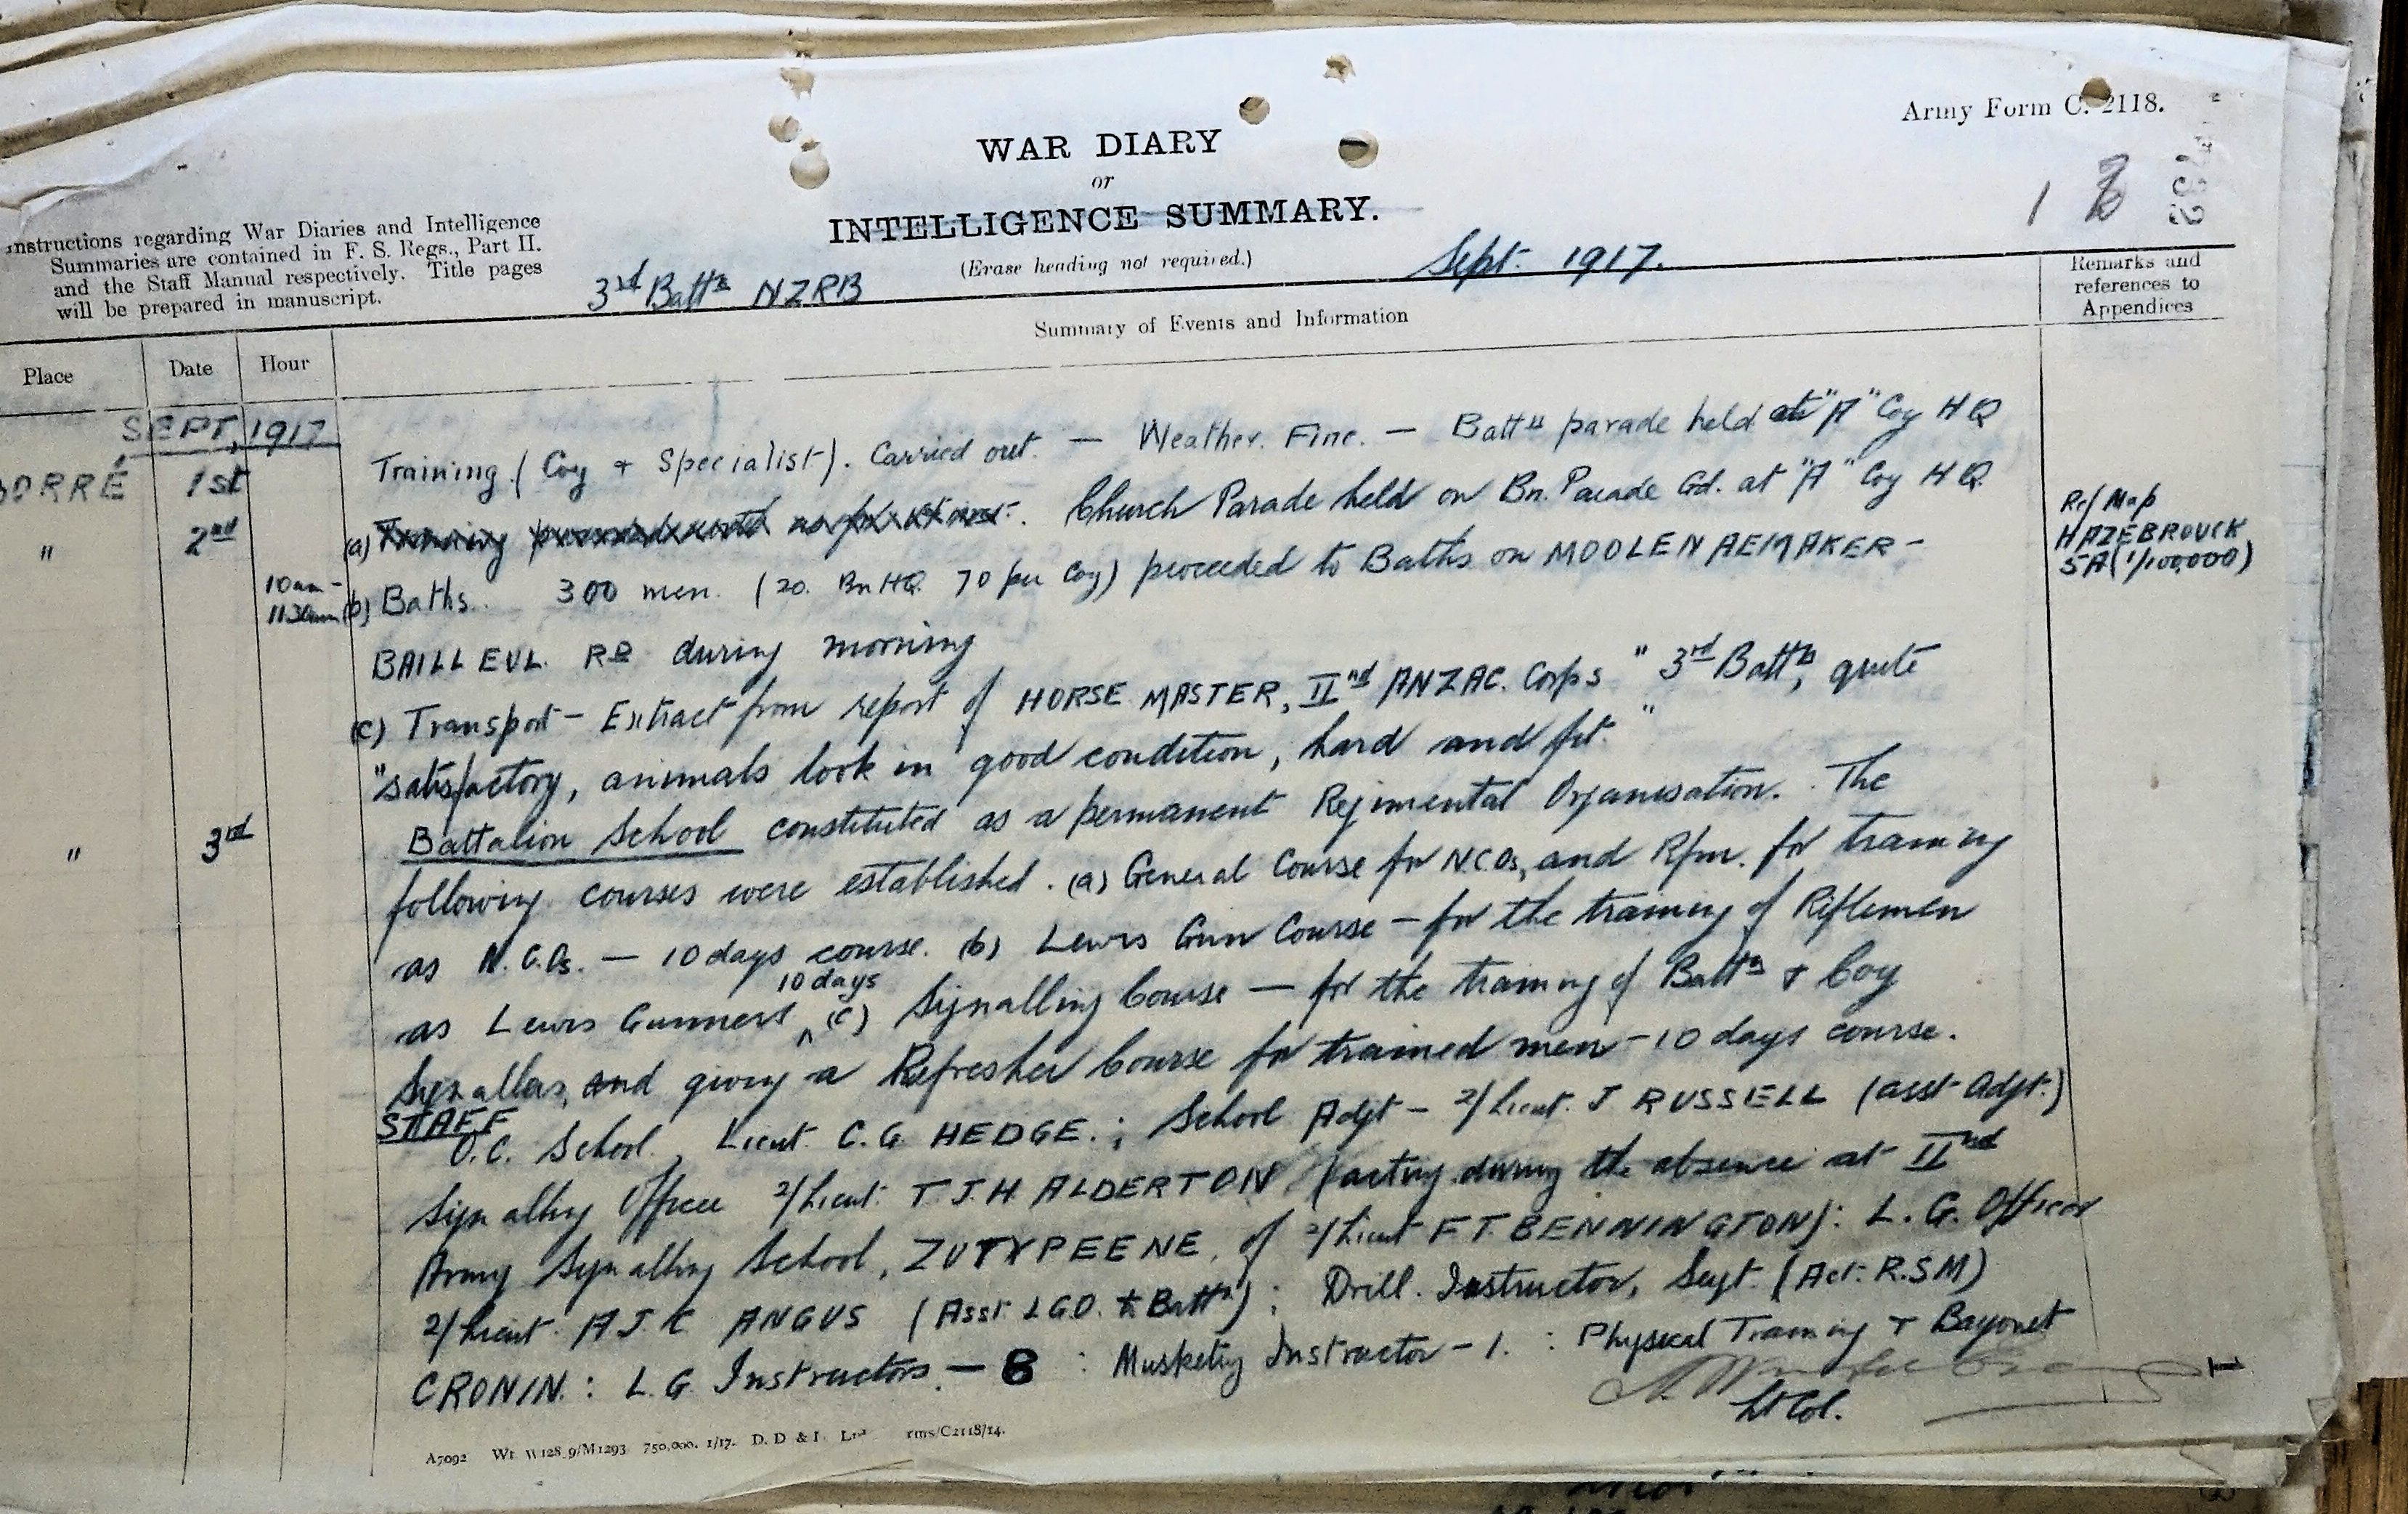 Army Form C. 2118.
WAR DIARY
or
INTELLIGENCE SUMMARY.
(Erase heading not required.)
Instructions regarding War Diaries and Intelligence
Summaries are contained in F. S. Regs., Part II.
and the Staff Manual respectively. Title pages
will be prepared in manuscript.
3rd Battn NZRB
Sept. 1917.
1
Remarks and
references to
Appendices
Summary of Events and Information
Place Date Hour
SEPT, 1917
BORRÉ 1st Training (Coy + Specialist). Carried out. — Weather. Fine. — Battn parade held at "A" Coy HQ
" 2nd (a) Church Parade held on Bn. Parade Gd. at "A" Coy HQ
10am - 11.30am (b) Baths. 300 men. (20. Bn HQ. 70 per Coy) proceeded to Baths on MOOLENAEMAKER -
BAILLEUL RD during morning
Ref Map
HAZEBROUCK
5A (1/100,000)
(c) Transport - Extract from report of HORSE MASTER, IInd ANZAC. Corps " 3rd Battn, quite
"satisfactory, animals look in good condition, hard and fit. "
" 3rd Battalion School constituted as a permanent Regimental Organisation. The
following courses were established. (a) General Course for N.C.Os, and Rfm. for training
as N.C.Os. — 10 days course. (b) Lewis Gun Course - for the training of Riflemen
as Lewis Gunners 10 days (c) Signalling Course — for the training of Battn + Coy
Signallers, and giving a Refresher Course for trained men - 10 days course.
STAFF
O.C. School, Lieut C.G. HEDGE. ; School Adjt - 2/Lieut. J RUSSELL (asst Adjt.)
Signalling Officer 2/Lieut. T.J.H. ALDERTON (acting during the absence at IInd
Army Signalling School, ZUTYPEENE, of 2/Lieut F.T. BENNINGTON): L.G. Officer
2/Lieut A.J.C. ANGUS (Asst. LGO. Battn) ; Drill. Instructor, Sergt. (Act: R.S.M)
CRONIN. : L.G. Instructors. - 6 : Musketry Instructor - 1. : Physical Training + Bayonet
Lt Col.
1
A7092 Wt. W128.9/M1293 750,000. 1/17. D. D & L. Ltd. Forms/C2118/14.